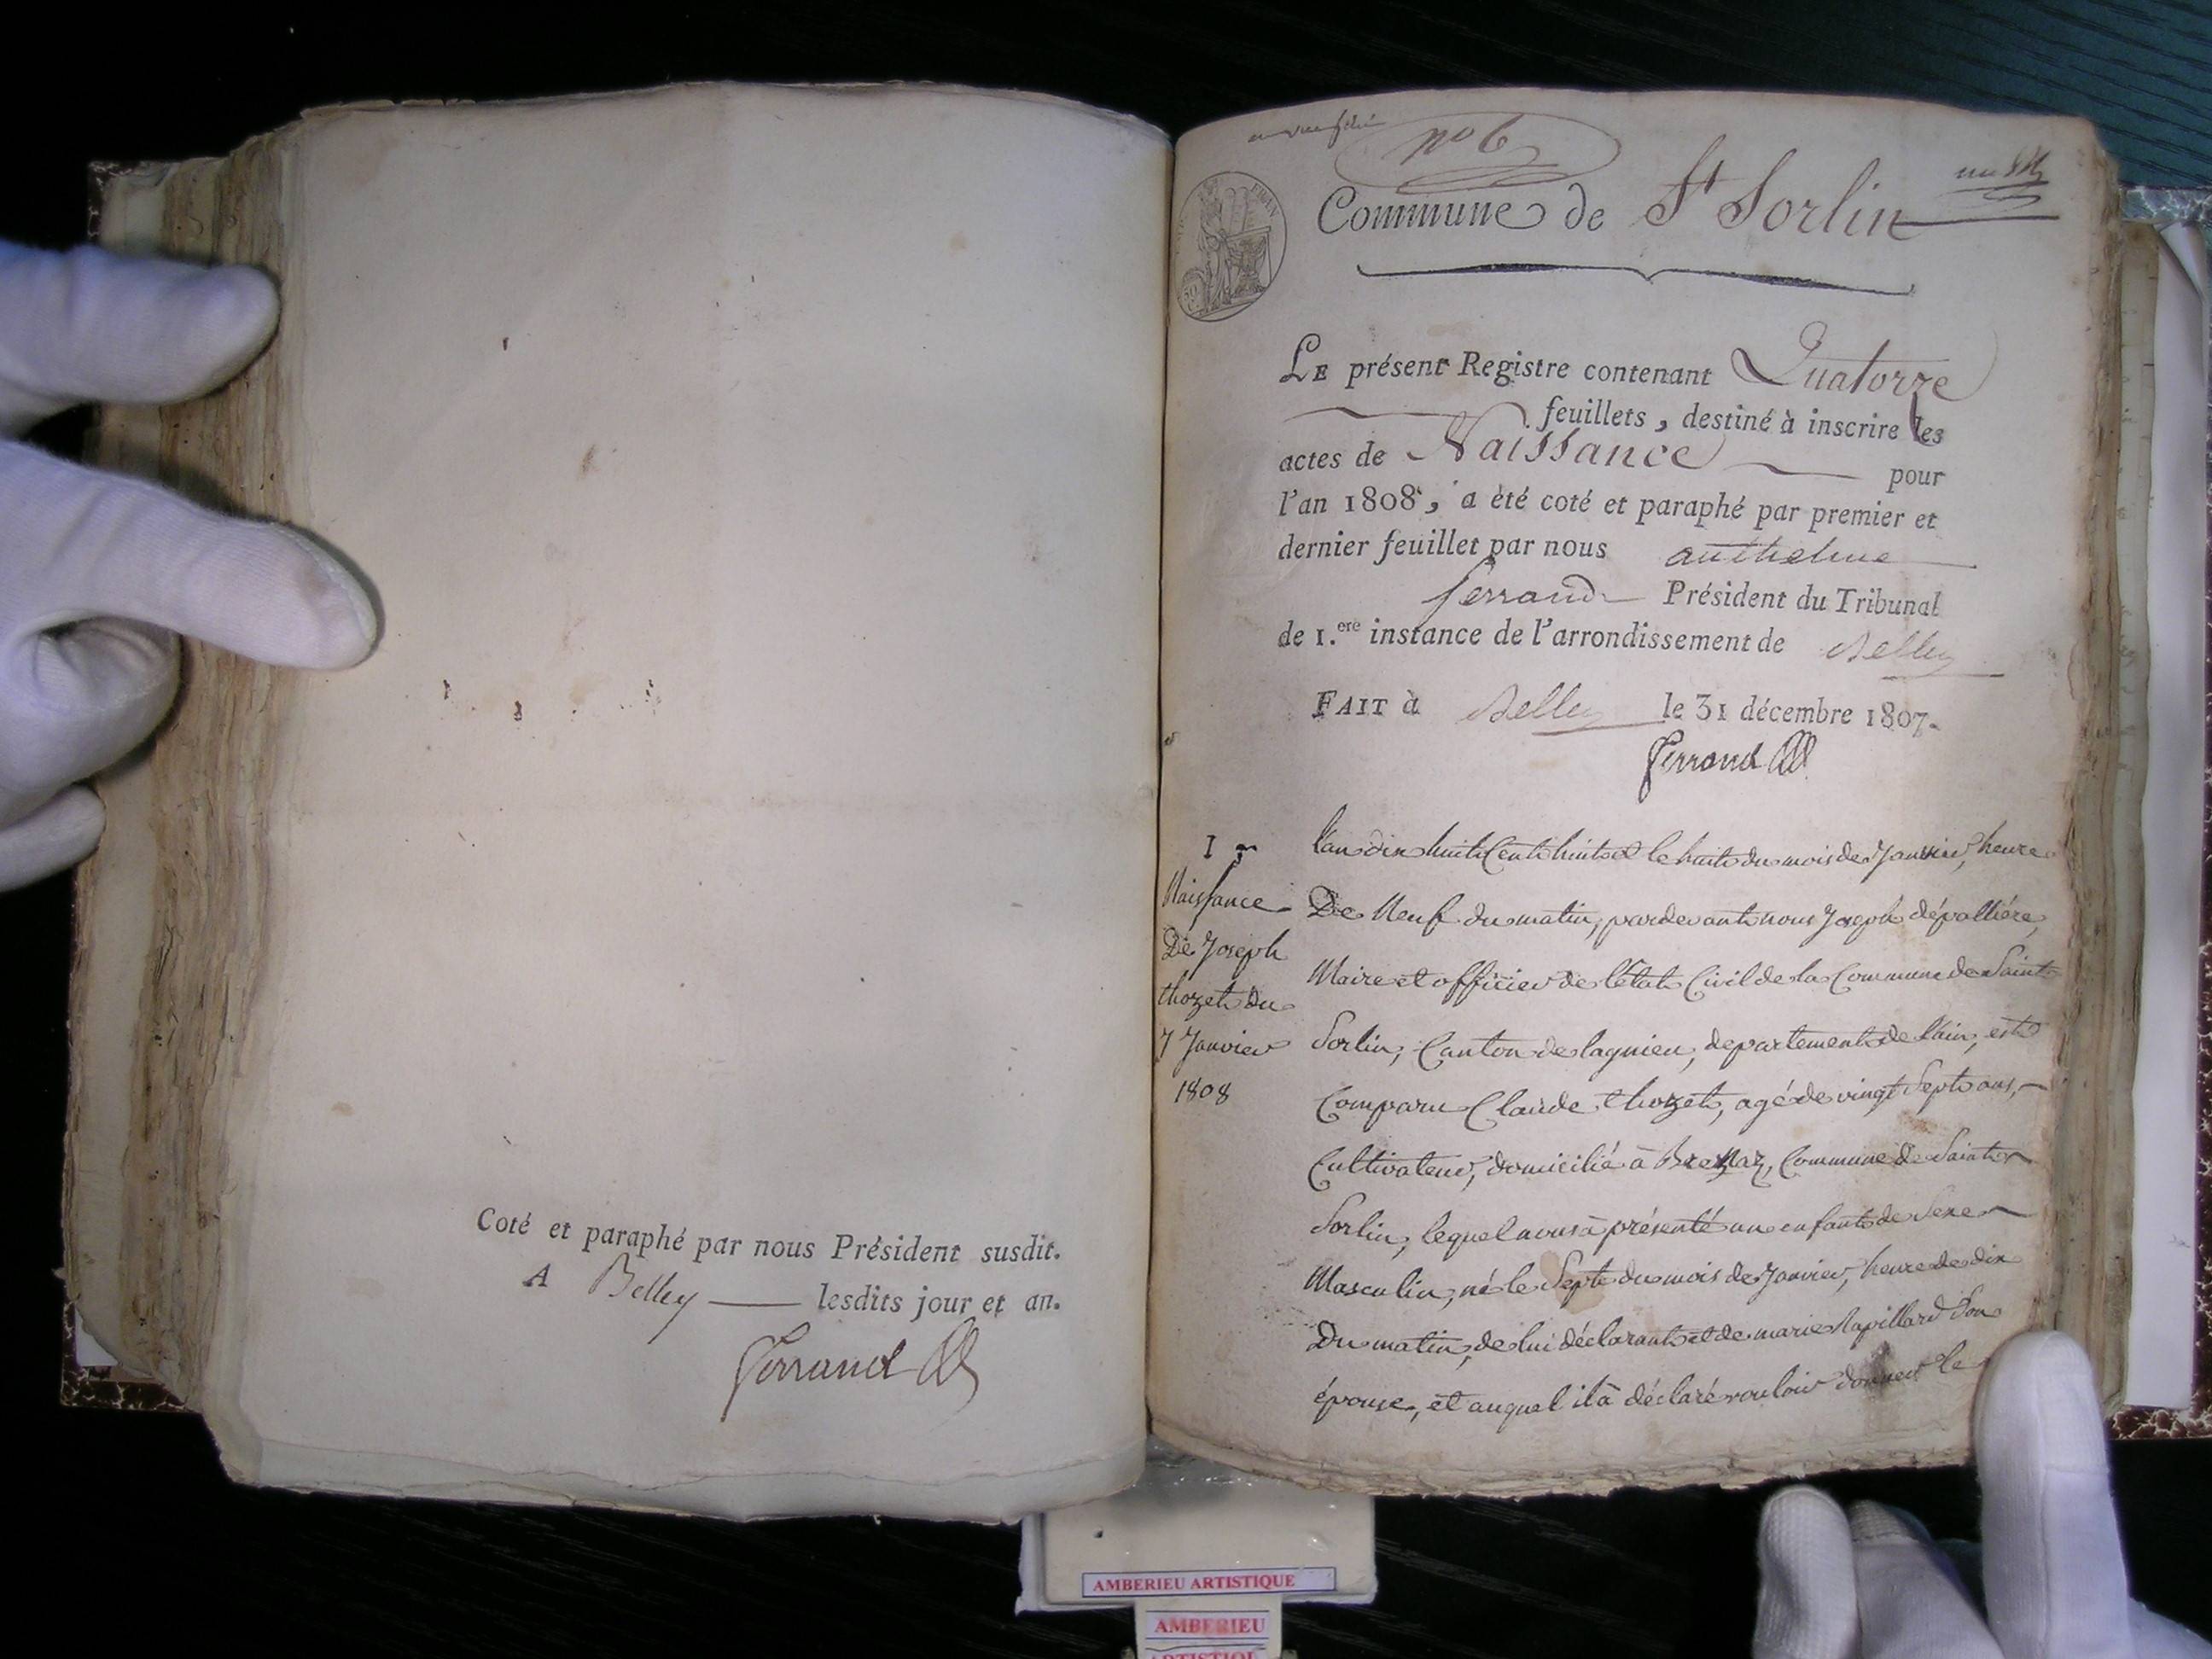 Coté et paraphé par nous Président susdit.
A Belley lesdits jour et an.
Ferrand
nº 6
Commune de St Sorlin
FRAN
50
LE présent Registre contenant Quatorze
feuillets, destiné à inscrire les
actes de Naissance pour
l'an 1808, a été coté et paraphé par premier et
dernier feuillet par nous anthelme
ferrand Président du Tribunal
de 1.ere instance de l'arrondissement de Belley
FAIT à Belley le 31 décembre 1807.
Ferrand
1
Naissance
De Joseph
thozet du
7 Janvier
1808
l'an dix huit Cent huit et le huit du mois de Janvier, heure
De Neuf du matin, pardevant nous Joseph dépallière,
Maire et officier de l'état Civil de la Commune de Saint
Sorlin, Canton de lagnieu, departement de l'ain, est
Comparu Claude thozet, agé de vingt Sept ans,
Cultivateur, domicilié à Commune de Saint
Sorlin, lequel nous à présenté un enfant de Sexe
Masculin, né le Sept du mois de Janvier, heure de dix
Du matin, de lui déclarant et de marie Rapillard Son
épouse, et auquel il à déclaré vouloir donner le
AMBERIEU ARTISTIQUE
AMBERIEU
ARTISTIQUE